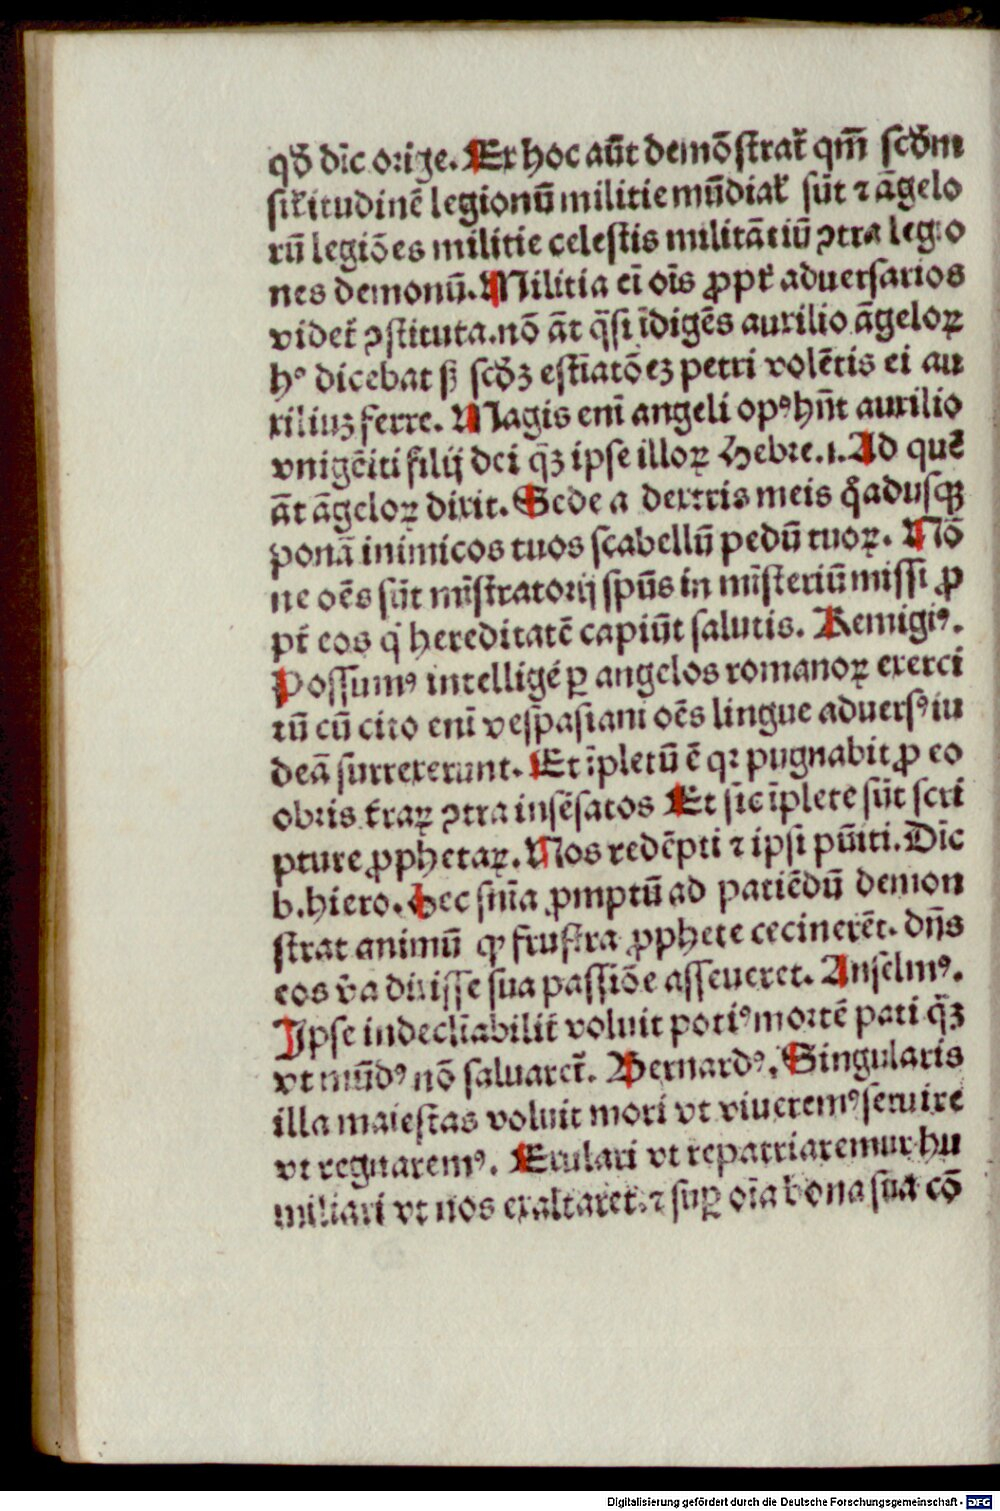 qđ dic̄ orige. Ex hoc aūt demōſtrat̄ qm̄ ſcđm
ſil̄itudinē legionū militie mūdial̄ ſūt ⁊ āgelo
rū legiōes militie celeſtis militātiū ꝯtra legio
nes demonū. Militia eī oīs ꝓpt̄ aduerſarios
videt̄ ꝯſtituta. nō āt q̄ſi īdigēs auxilio āgeloꝝ
hꝰ dicebat ſꝫ ſcđꝫ eſtīatōeꝫ petri volētis ei au
xiliuꝫ ferre. Magis enī angeli opꝰ hn̄t auxilio
vnigēiti filij dei q̄ꝫ ipſe illoꝝ Hebre.1. Ad quē
āt āgeloꝝ dixit. Sede a dextris meis q̊aduſqꝫ
ponā inimicos tuos ſcabellū pedū tuoꝝ. Nō
ne oēs ſūt mīſtratorij ſpūs in mīſteriū miſſi ꝓ
pt̄ eos q̇ hereditatē capiūt ſalutis. Remigiꝰ.
Poſſumꝰ intelligē ꝑ angelos romanoꝝ exerci
tū cū cito enī veſpaſiani oēs lingue aduerſꝰ iu
deā ſurrexerunt. Et īpletū ē qꝛ pugnabit ꝓ eo
obris t̄raꝝ ꝯtra inſēſatos Et ſic īplete ſūt ſcri
pture ꝓphetaꝝ. Nos redēpti ⁊ ipſi pūiti. Dic̄
b. hiero. Hec ſnīa ꝓmptū ad patiēdū demon
ſtrat animū ꝙ fruſtra ꝓphete cecinerēt. dn̄s
eos v̄a dixiſſe ſua paſſiōe aſſeueret. Anſelmꝰ.
Ipſe indeclīabilit̄ voluit potiꝰ mortē pati q̄ꝫ
vt mūdꝰ nō ſaluaret̄. Bernardꝰ. Singularis
illa maieſtas voluit mori vt viueremꝰ ſeruire
vt regnaremꝰ. Exulari vt repatriaremur hu
miliari vt nos exaltaret. ⁊ ſuꝑ oīa bona ſua cō
Digitalisierung gefördert durch die Deutsche Forschungsgemeinschaft - DFG